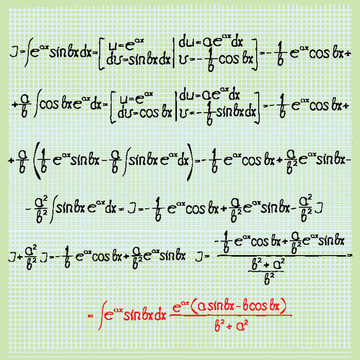 J=∫e^{ax}sinbxdx=[u=e^{ax} dv=sinbxdx | du=ae^{ax}dx v=-\frac{1}{b}cosbx]=-\frac{1}{b}e^{ax}cosbx+
+\frac{a}{b}∫cosbxe^{ax}dx=[u=e^{ax} dv=cosbx | du=ae^{ax}dx v=-\frac{1}{b}sinbxdx]=-\frac{1}{b}e^{ax}cosbx+
+\frac{a}{b}(\frac{1}{b}e^{ax}sinbx-\frac{a}{b}∫sinbxe^{ax}dx)=-\frac{1}{b}e^{ax}cosbx+\frac{a}{b^2}e^{ax}sinbx-
-\frac{a^2}{b^2}∫sinbxe^{ax}dx=J=-\frac{1}{b}e^{ax}cosbx+\frac{a}{b^2}e^{ax}sinbx-\frac{a^2}{b^2}J
J+\frac{a^2}{b^2}J=-\frac{1}{b}e^{ax}cosbx+\frac{a}{b^2}e^{ax}sinbx J=\frac{-\frac{1}{b}e^{ax}cosbx+\frac{a}{b^2}e^{ax}sinbx}{\frac{b^2+a^2}{b^2}}=
=∫e^{ax}sinbxdx\frac{e^{ax}(asinbx-bcosbx)}{b^2+a^2}